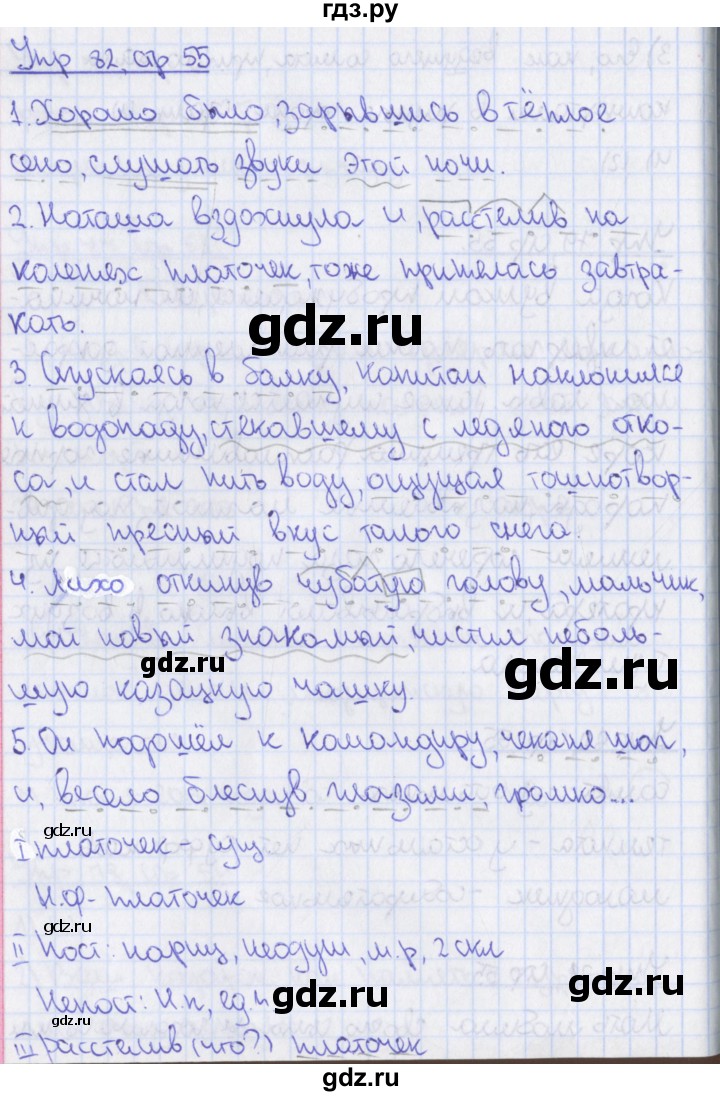 гдз.ру
Упр 82, стр 55
1. Хорошо было, зарывшись в тёплое
сено, слушать звуки этой ночи.
2. Наташа вздохнула и, расстелив на
коленях платочек, тоже принялась завтра-
кать.
gdz.ru
3. Спускаясь в балку, капитан наклонился
к водопаду, стекавшему с ледяного отко-
са, и стал пить воду, ощущая тошнотвор-
ный пресный вкус талого снега.
4. Лихо откинув чубатую голову, мальчик,
мой новый знакомый, чистил неболь-
gdz.ru
gdz.ru
шую казацкую чашку.
5. Он подошёл к командиру, чеканя шаг,
и, весело блеснув глазами, громко...
gdz.ru
I платочек - сущ
Н.ф - платочек
gdz.ru
II Пост: нариц, неодуш, м.р, 2 скл
gdz.ru
Непост: И.п, ед.ч
gdz.ru
gdz.ru
III расстелив (что?) платочек
gdz.ru